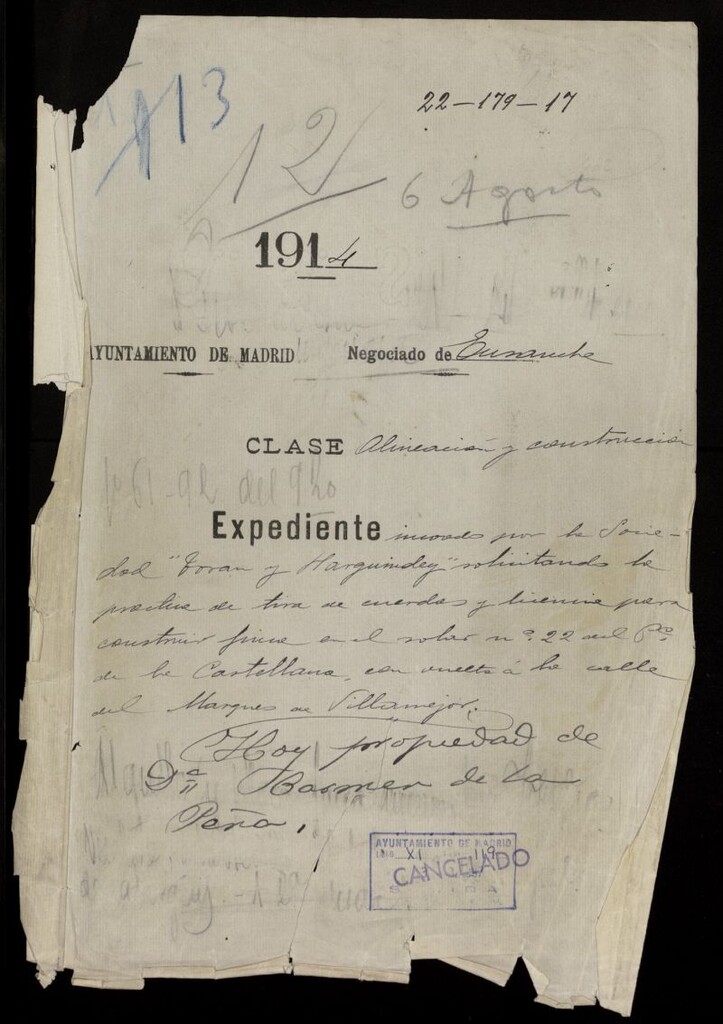 113
22-179-17
12
6 Agosto
1914
AYUNTAMIENTO DE MADRID Negociado de Ensanche
CLASE Alineación y construccion
Expediente incoado por la Socie-
dad "Toran y Harguindey" solicitando la
practica de tira de cuerdas y licencia para
construir finca en el solar nº. 22 del Pº.
de la Castellana, con vuelta á la calle
del Marques de Villamejor.
(Hoy propiedad de
Dª Carmen de la
Peña.
AYUNTAMIENTO DE MADRID
XI 119
CANCELADO